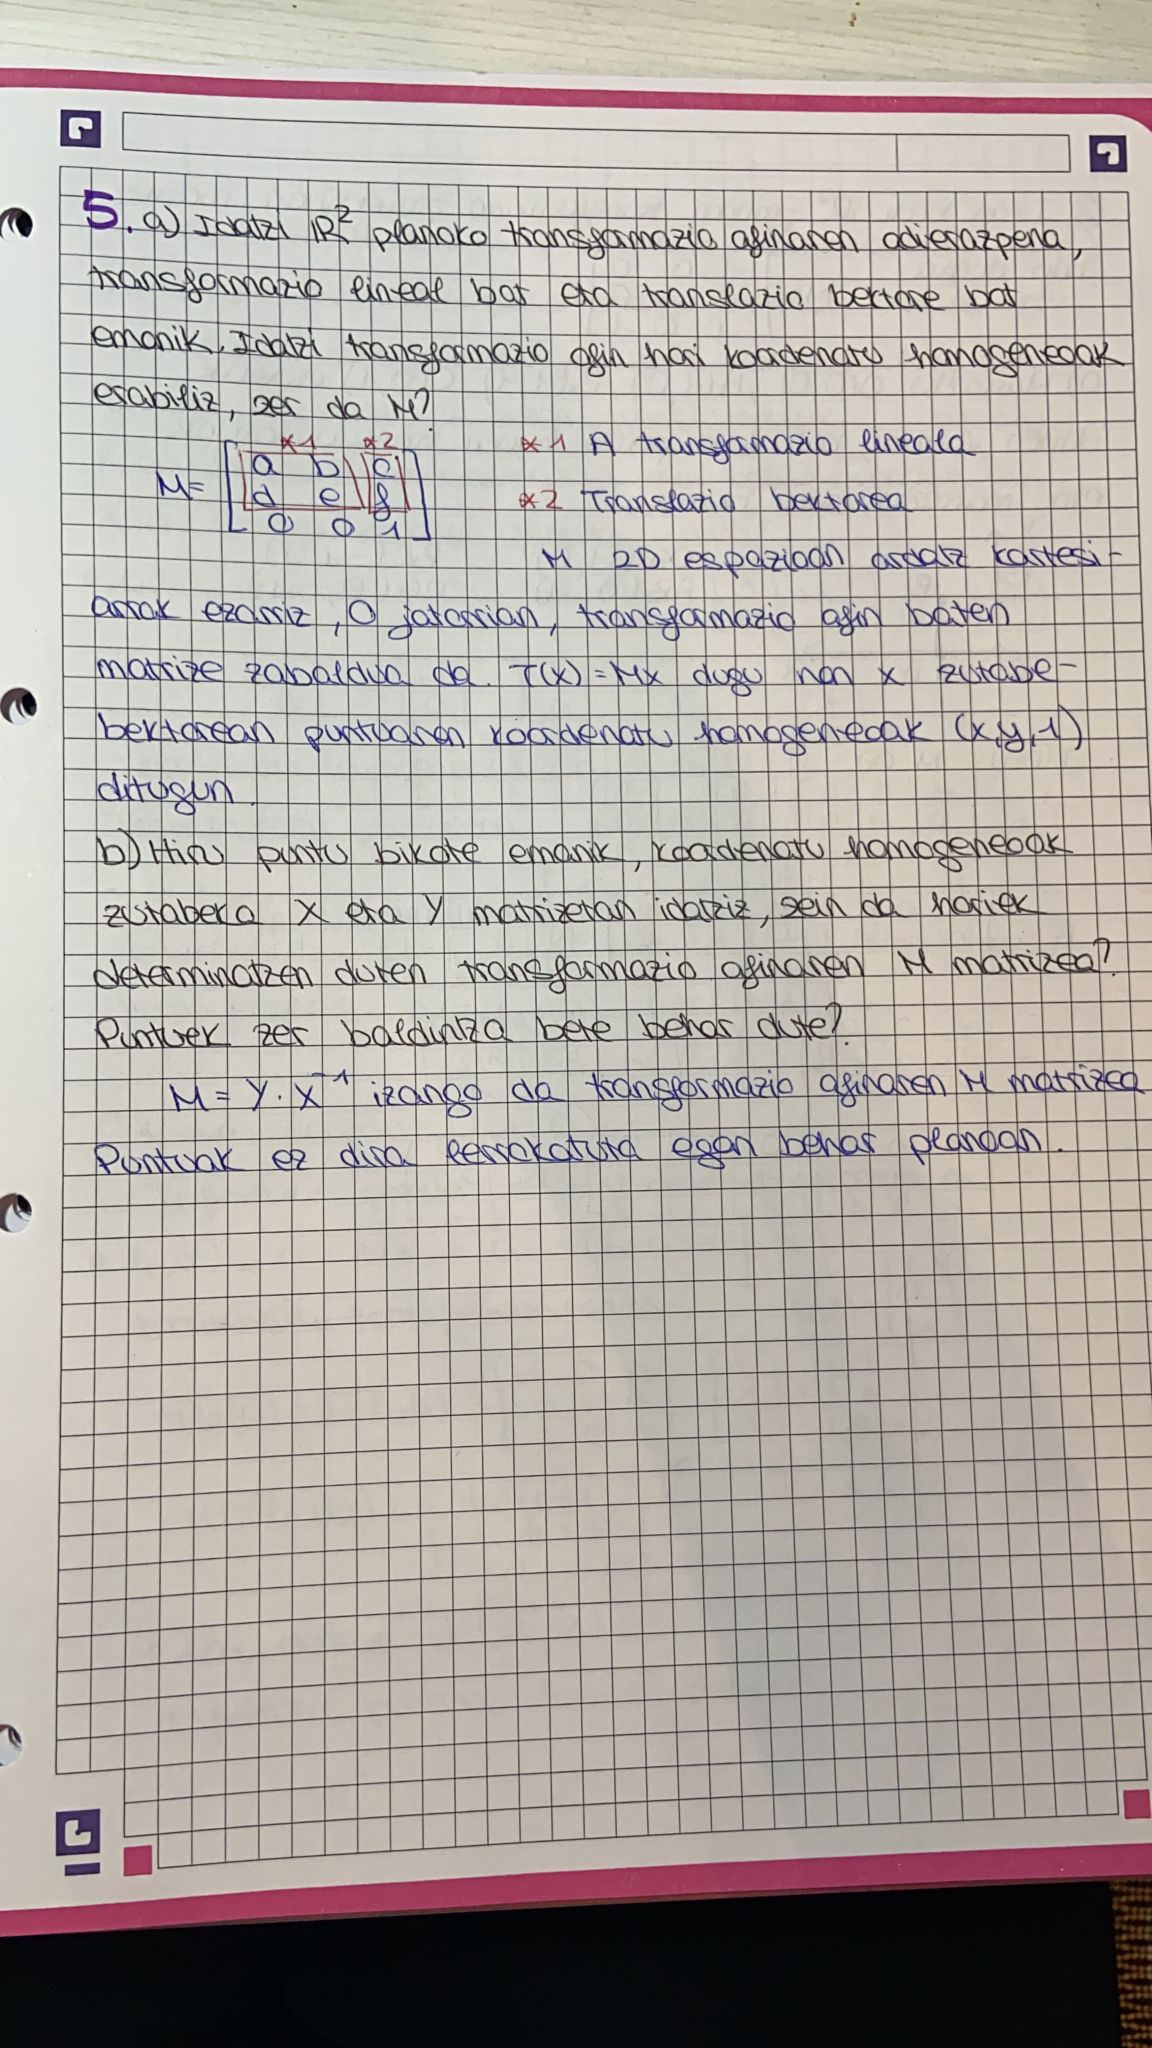 5. a) Idatzi ℝ² planoko transformazio afinaren adierazpena,
transformazio lineal bat eta translazio bektore bat
emanik. Idatzi transformazio afin hori koordenatu homogeneoak
erabiliz, zer da M?
*1 *2
M= [a b c
d e f
0 0 1]
*1 A transformazio lineala
*2 Translazio bektorea
M 2D espazioan ardatz kartesi-
arrak ezarriz, O jatorrian, transformazio afin baten
matrize zabaldua da. T(x)=Mx dugu non x zutabe-
bektorean puntuaren koordenatu homogeneoak (x,y,1)
ditugun.
b) Hiru puntu bikote emanik, koordenatu homogeneoak
zutabeka X eta Y matrizetan idatziz, zein da horiek
determinatzen duten transformazio afinaren M matrizea?
Puntuek zer baldintza bete behar dute?
M = Y · X⁻¹ izango da transformazio afinaren M matrizea
Puntuak ez dira lerrokatuta egon behar planoan.